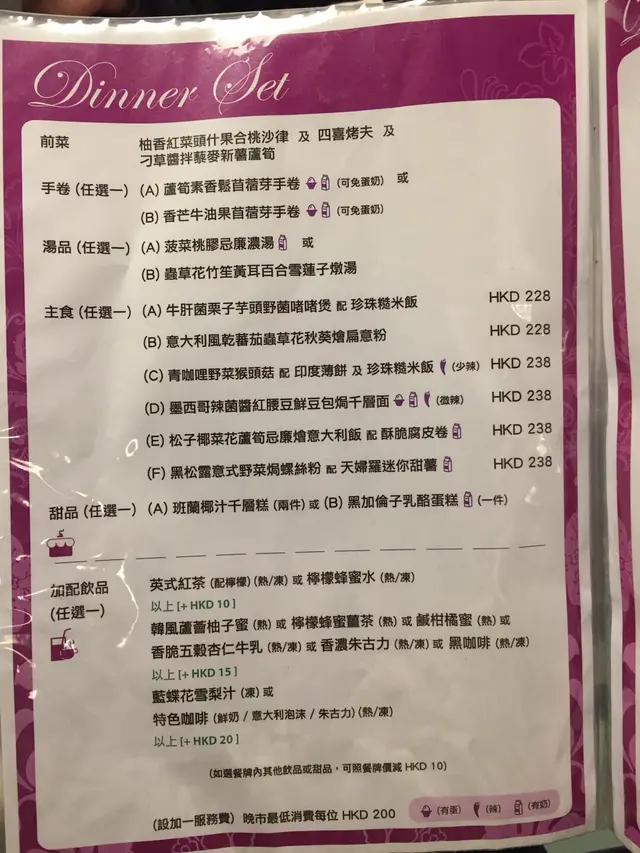 Dinner Set
前菜 柚香紅菜頭什果合桃沙律 及 四喜烤夫 及
刁草醬拌藜麥新薯蘆筍
手卷 (任選一) (A) 蘆筍素香鬆苜蓿芽手卷 (可免蛋奶) 或
(B) 香芒牛油果苜蓿芽手卷 (可免蛋奶)
湯品 (任選一) (A) 菠菜桃膠忌廉濃湯 或
(B) 蟲草花竹笙黃耳百合雪蓮子燉湯
主食 (任選一) (A) 牛肝菌栗子芋頭野菌啫啫煲 配 珍珠糙米飯 HKD 228
(B) 意大利風乾蕃茄蟲草花秋葵燴扁意粉 HKD 228
(C) 青咖哩野菜猴頭菇 配 印度薄餅 及 珍珠糙米飯 (少辣) HKD 238
(D) 墨西哥辣菌醬紅腰豆鮮豆包焗千層面 (微辣) HKD 238
(E) 松子椰菜花蘆筍忌廉燴意大利飯 配 酥脆腐皮卷 HKD 238
(F) 黑松露意式野菜焗螺絲粉 配 天婦羅迷你甜薯 HKD 238
甜品 (任選一) (A) 班蘭椰汁千層糕 (兩件) 或 (B) 黑加倫子乳酪蛋糕 (一件)
加配飲品 英式紅茶 (配檸檬) (熱/凍) 或 檸檬蜂蜜水 (熱/凍)
(任選一) 以上 [+ HKD 10 ]
韓風蘆薈柚子蜜 (熱) 或 檸檬蜂蜜薑茶 (熱) 或 鹹柑橘蜜 (熱) 或
香脆五穀杏仁牛乳 (熱/凍) 或 香濃朱古力 (熱/凍) 或 黑咖啡 (熱/凍)
以上 [+ HKD 15 ]
藍蝶花雪梨汁 (凍) 或
特色咖啡 (鮮奶 / 意大利泡沫 / 朱古力) (熱/凍)
以上 [+ HKD 20 ]
(如選餐牌內其他飲品或甜品，可照餐牌價減 HKD 10)
(設加一服務費) 晚市最低消費每位 HKD 200 (有蛋) (辣) (有奶)